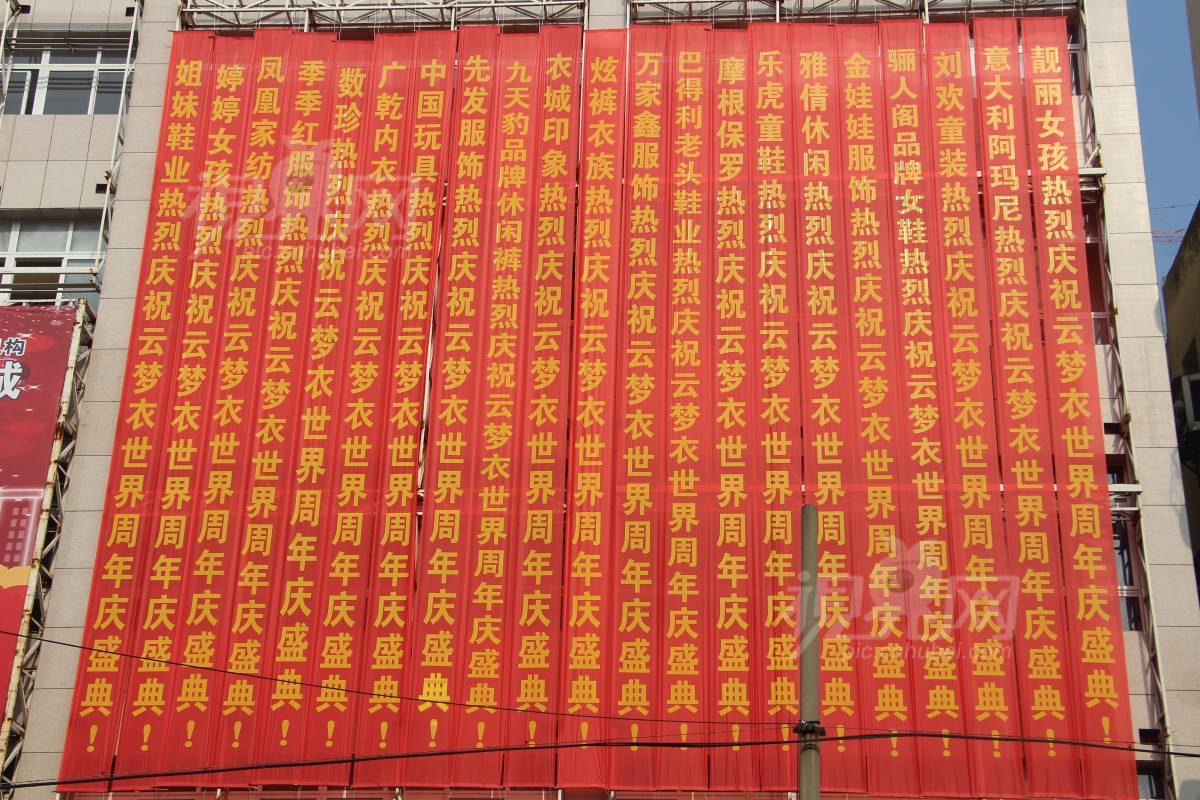 姐妹鞋业热烈庆祝云梦衣世界周年庆盛典！
婷婷女孩热烈庆祝云梦衣世界周年庆盛典！
凤凰家纺热烈庆祝云梦衣世界周年庆盛典！
季季红服饰热烈庆祝云梦衣世界周年庆盛典！
数珍热烈庆祝云梦衣世界周年庆盛典！
广乾内衣热烈庆祝云梦衣世界周年庆盛典！
中国玩具热烈庆祝云梦衣世界周年庆盛典！
先发服饰热烈庆祝云梦衣世界周年庆盛典！
九天豹品牌休闲裤热烈庆祝云梦衣世界周年庆盛典！
衣城印象热烈庆祝云梦衣世界周年庆盛典！
炫裤衣族热烈庆祝云梦衣世界周年庆盛典！
万家鑫服饰热烈庆祝云梦衣世界周年庆盛典！
巴得利老头鞋业热烈庆祝云梦衣世界周年庆盛典！
摩根保罗热烈庆祝云梦衣世界周年庆盛典！
乐虎童鞋热烈庆祝云梦衣世界周年庆盛典！
雅倩休闲热烈庆祝云梦衣世界周年庆盛典！
金娃娃服饰热烈庆祝云梦衣世界周年庆盛典！
骊人阁品牌女鞋热烈庆祝云梦衣世界周年庆盛典！
刘欢童装热烈庆祝云梦衣世界周年庆盛典！
意大利阿玛尼热烈庆祝云梦衣世界周年庆盛典！
靓丽女孩热烈庆祝云梦衣世界周年庆盛典！
构
城